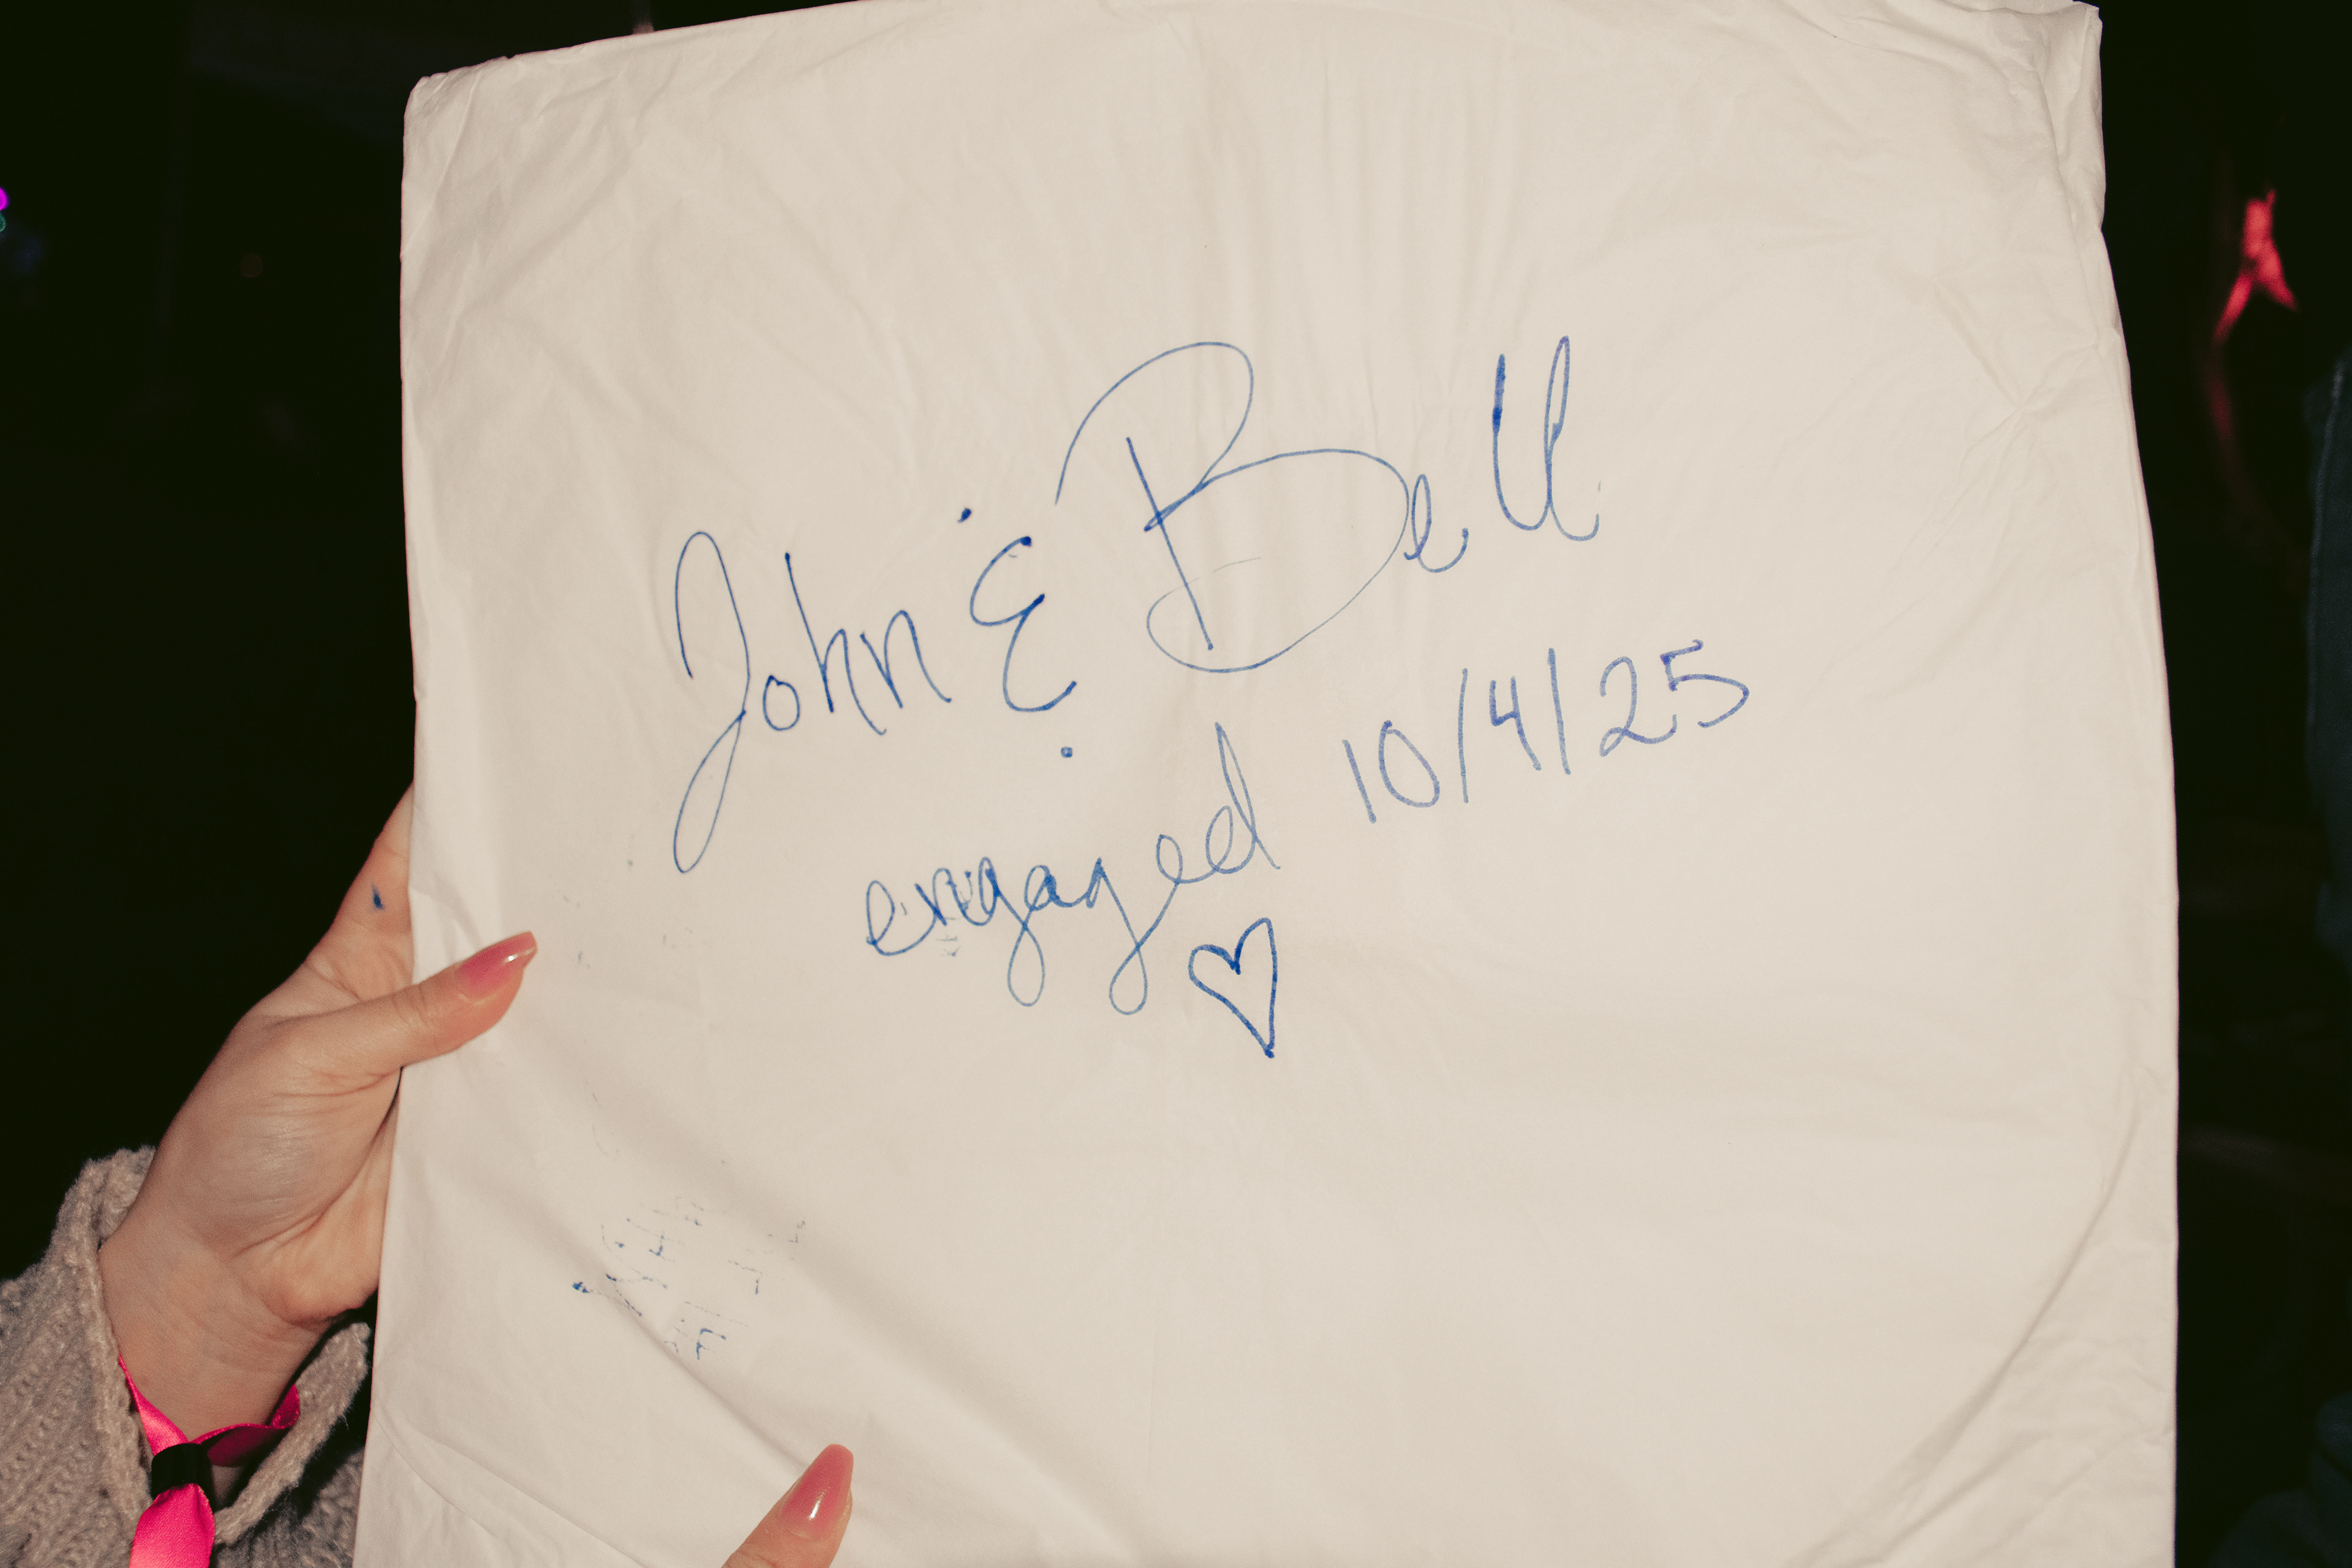 John & Bell
engaged 10/4/25